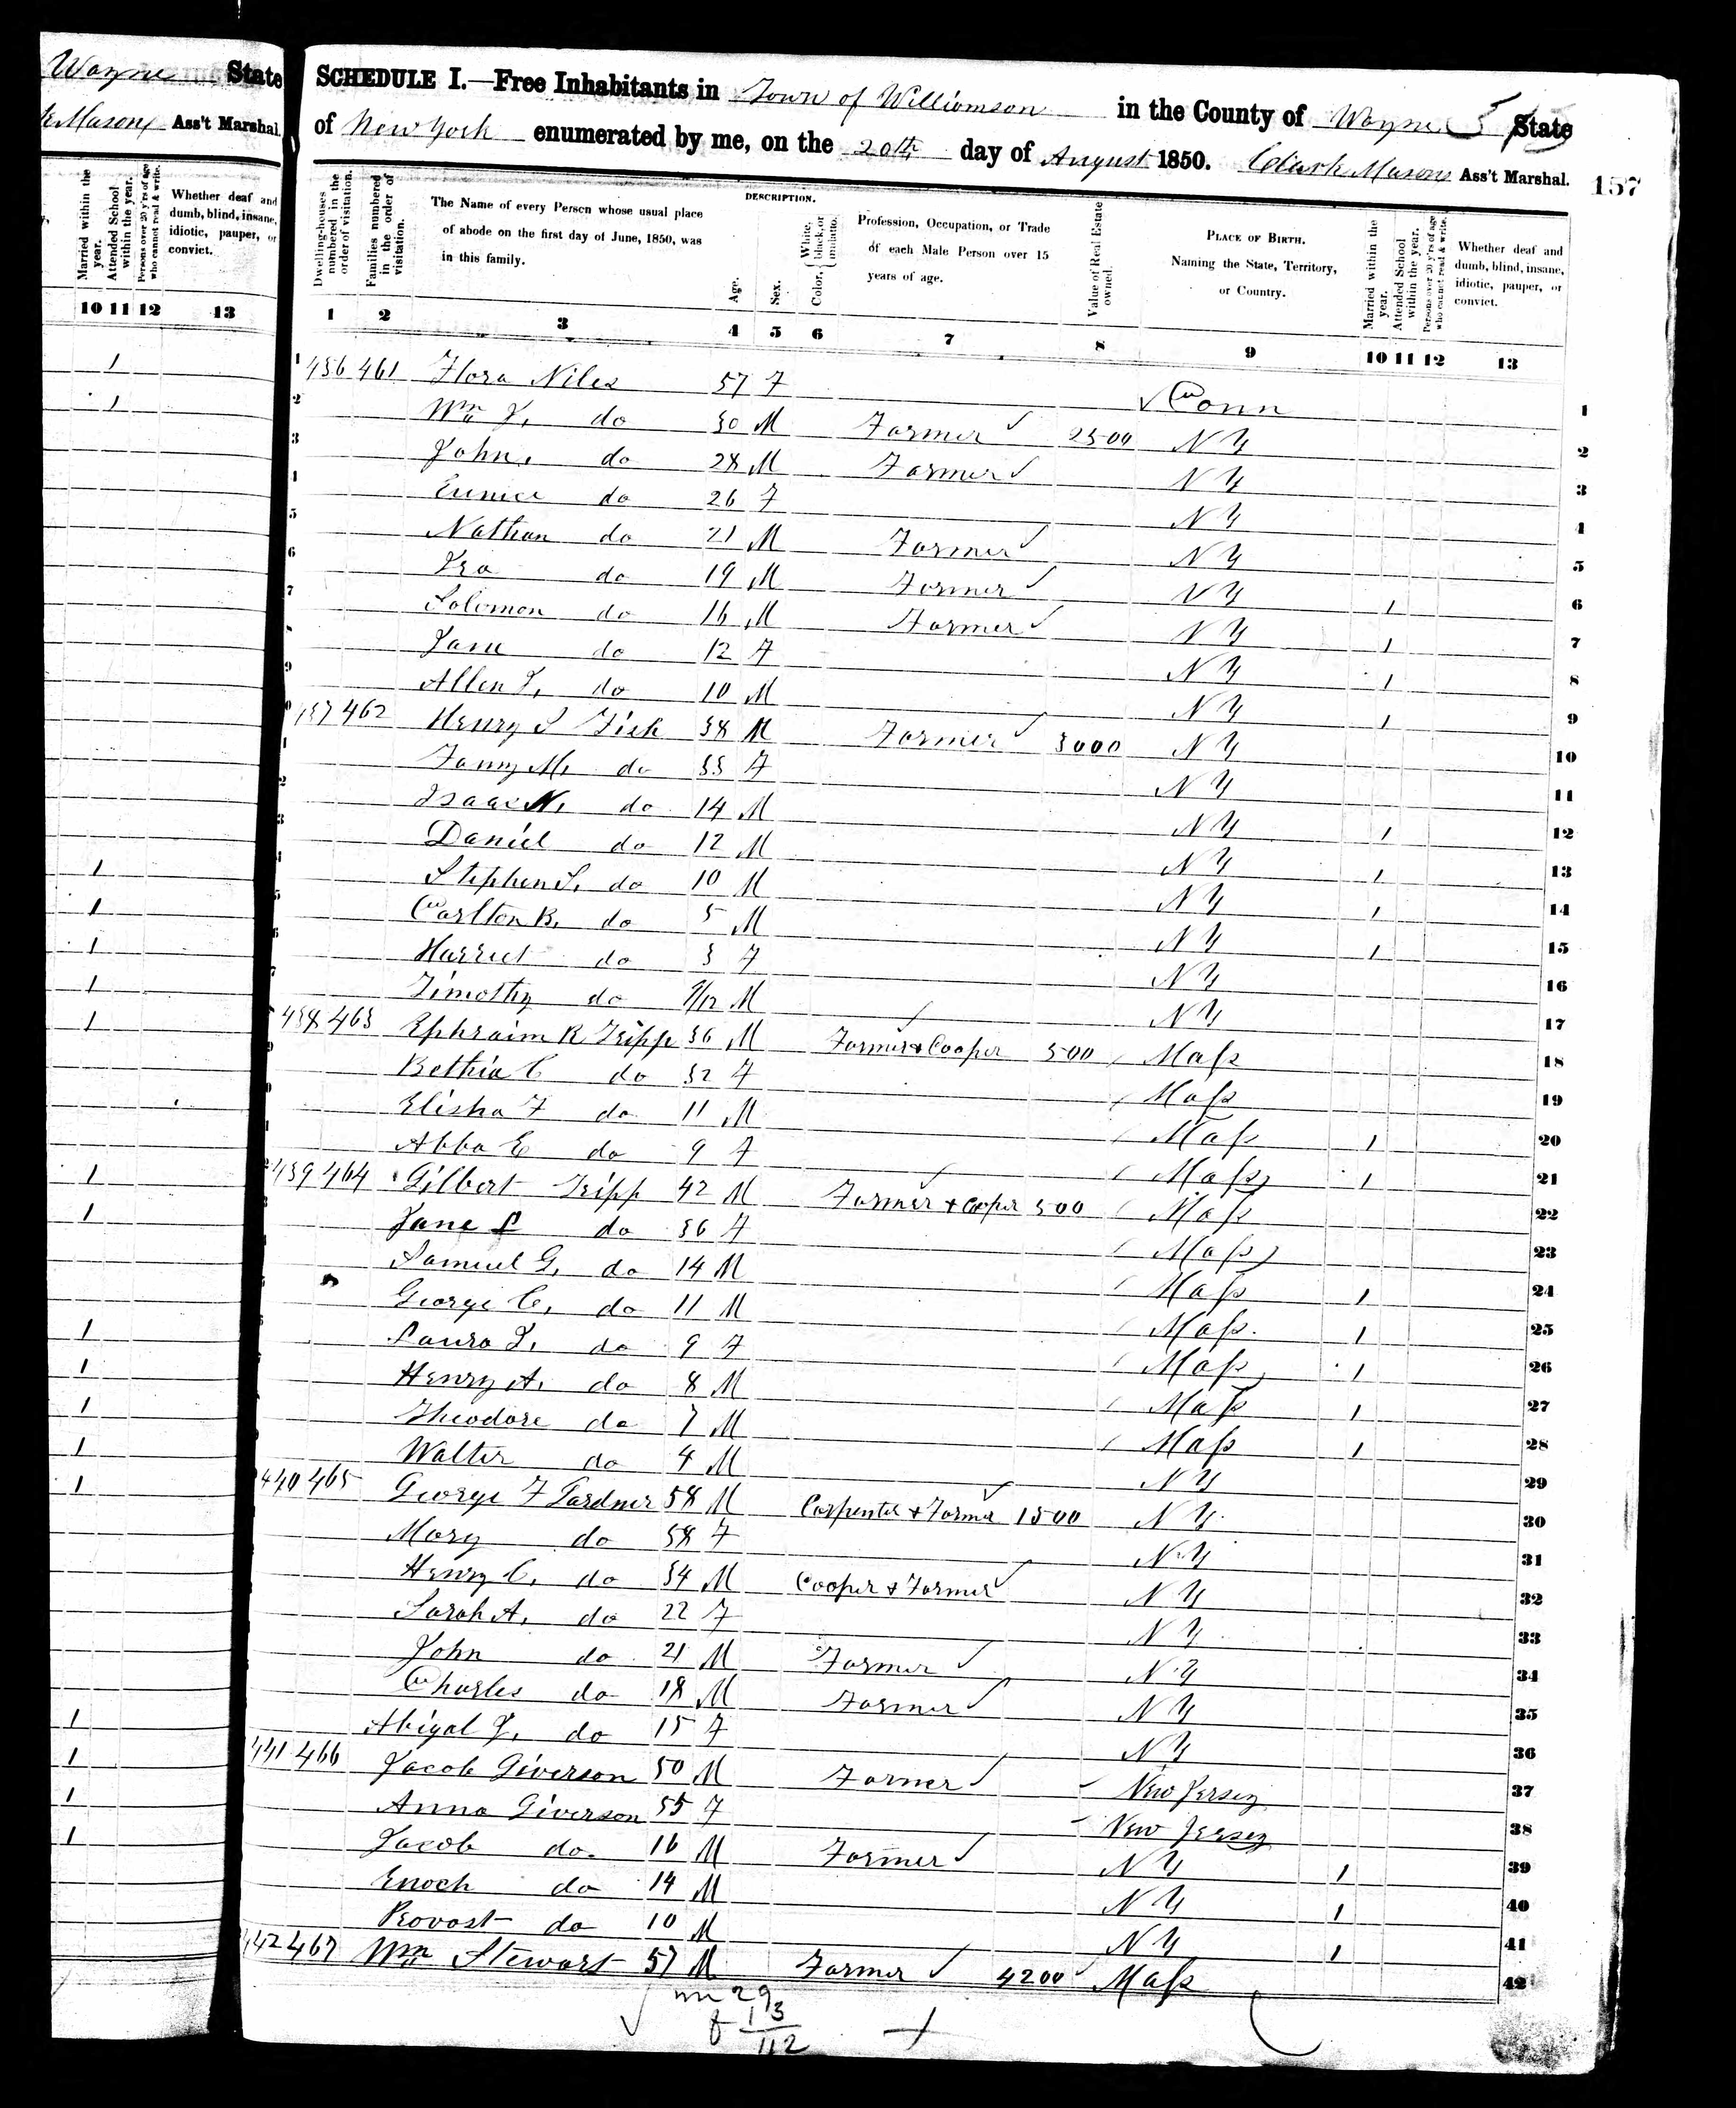 Wayne State
k Mason Ass't Marshal.
Married within the year.
Attended School within the year.
Persons over 20 y'rs of age who cannot read & write.
Whether deaf and dumb, blind, insane, idiotic, pauper, or convict.
10 11 12 13
SCHEDULE I.—Free Inhabitants in Town of Williamson in the County of Wayne State
of New York enumerated by me, on the 20th day of August 1850. Clark Mason Ass't Marshal. 157
Dwelling-houses numbered in the order of visitation.
Families numbered in the order of visitation.
The Name of every Person whose usual place of abode on the first day of June, 1850, was in this family.
DESCRIPTION.
Age.
Sex.
Color, { White, black, or mulatto.
Profession, Occupation, or Trade of each Male Person over 15 years of age.
Value of Real Estate owned.
PLACE OF BIRTH.
Naming the State, Territory, or Country.
Married within the year.
Attended School within the year.
Persons over 20 y'rs of age who cannot read & write.
Whether deaf and dumb, blind, insane, idiotic, pauper, or convict.
1 2 3 4 5 6 7 8 9 10 11 12 13
1 436 461 Flora Niles 57 F Conn 1
2 Wm T. do 30 M Farmer 2500 N Y 2
3 John, do 28 M Farmer N Y 3
4 Eunice do 26 F N Y 4
5 Nathan do 21 M Farmer N Y 5
6 Ira do 19 M Farmer N Y 1 6
7 Solomon do 16 M Farmer N Y 1 7
Jane do 12 F N Y 1 8
9 Allen T, do 10 M N Y 1 9
437 462 Henry S Fish 38 M Farmer 3000 N Y 10
Fanny M, do 33 F N Y 11
Isaac N, do 14 M N Y 1 12
Daniel do 12 M N Y 1 13
Stephen S, do 10 M N Y 1 14
Carlton B, do 5 M N Y 1 15
Harriet do 3 F N Y 16
Timothy do 9/12 M N Y 17
438 463 Ephraim R Tripp 36 M Farmer & Cooper 500 Mass 18
Bethia C do 32 F Mass 19
Elisha F do 11 M Mass 1 20
Abba E do 9 F Mass 1 21
439 464 Gilbert Tripp 42 M Farmer & Cooper 500 Mass 22
Jane S do 36 F Mass 23
Samuel G, do 14 M Mass 1 24
George C, do 11 M Mass. 1 25
Laura T, do 9 F Mass 1 26
Henry A, do 8 M Mass 1 27
Theodore do 7 M Mass 1 28
Walter do 4 M N Y 29
440 465 George F Gardner 58 M Carpenter & Farmer 1500 N Y 30
Mary do 58 F N Y 31
Henry C, do 34 M Cooper & Farmer N Y 32
Sarah A, do 22 F N Y 33
John do 21 M Farmer N Y 34
Charles do 18 M Farmer N Y 35
Abigal J, do 15 F N Y 36
441 466 Jacob Giverson 50 M Farmer New Jersey 37
Anna Giverson 55 F New Jersey 38
Jacob do 16 M Farmer N Y 1 39
Enoch do 14 M N Y 1 40
Provost do 10 M N Y 1 41
442 467 Wm Stewart 57 M Farmer 4200 Mass 42
m 29
f 13
42